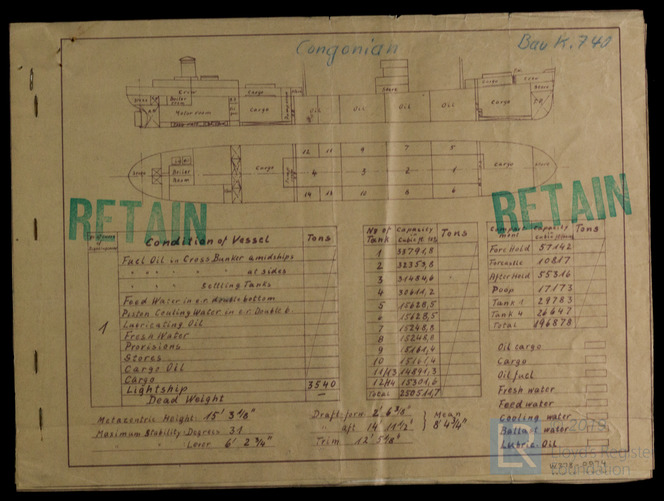 Congonian
Bau K. 740
Crew
Boiler room
Motor room
Cargo
Cargo
Oil
Oil
Oil
Oil
Cargo
Cargo
Crew
Store
12 11 9 7 5
4 3 2 1
14 13 10 8 6
Boiler Room
Cargo
Cargo
RETAIN
RETAIN
Condition of Vessel Tons
Fuel Oil in Cross Bunker amidships
" " " " " at sides
" " " Settling Tanks
Feed Water in e.r. double bottom
Piston Cooling Water in e.r. Double b
Lubricating Oil
Fresh Water
Provisions
Stores
Cargo Oil
Cargo
Lightship 3540
Dead Weight —
1
No of Tank Capacity Tons
1
2 32353,8
3 31484,6
4
5 15628,5
6 15628,5
7 15248,8
8 15248,8
9
10
11/13 14891,3
12/14 15301,6
Total 250511,7
Capacity Tons
Fore Hold 57142
Forcastle 10817
After Hold 55316
Poop 17173
Tank 1 29783
Tank 4 26647
Total 196878
Oil cargo
Cargo
Oil fuel
Fresh water
Feed water
Cooling water
Ballast water
Lubric. Oil
Metacentric Height: 15' 3 1/8"
Maximum Stability: Degree 31
" " Lever 6' 2 3/4"
Draft form 2' 6 3/8"
" aft 14' 11 1/2"
Mean 8' 4 1/4"
Trim 12' 5 1/8"
Lloyd's Register
Foundation